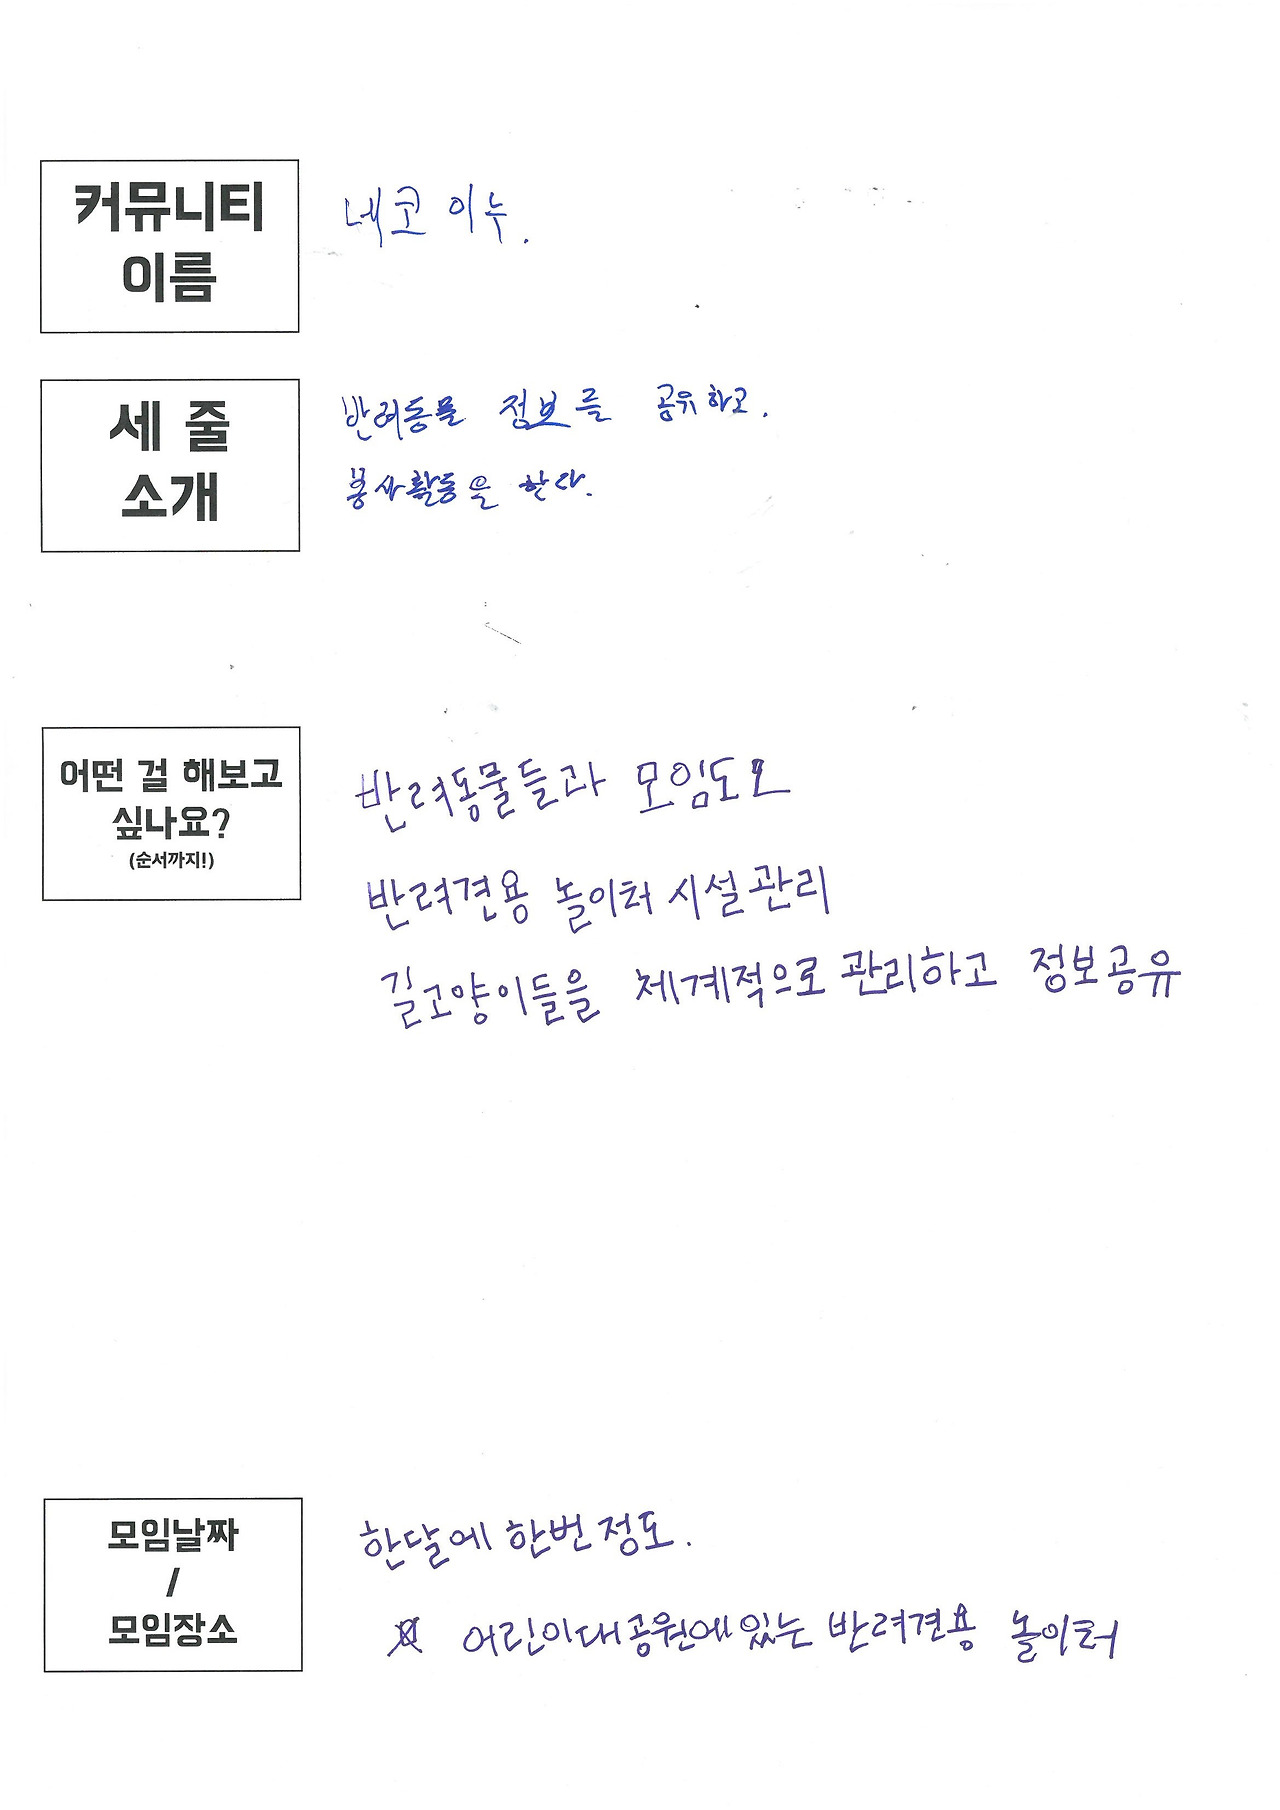 커뮤니티
이름
네코 이누.
세 줄
소개
반려동물 정보를 공유하고.
봉사활동을 한다.
어떤 걸 해보고
싶나요?
(순서까지!)
반려동물들과 모임도모
반려견용 놀이터 시설관리
길고양이들을 체계적으로 관리하고 정보공유
모임날짜
/
모임장소
한달에 한번 정도.
어린이대공원에있는 반려견용 놀이터